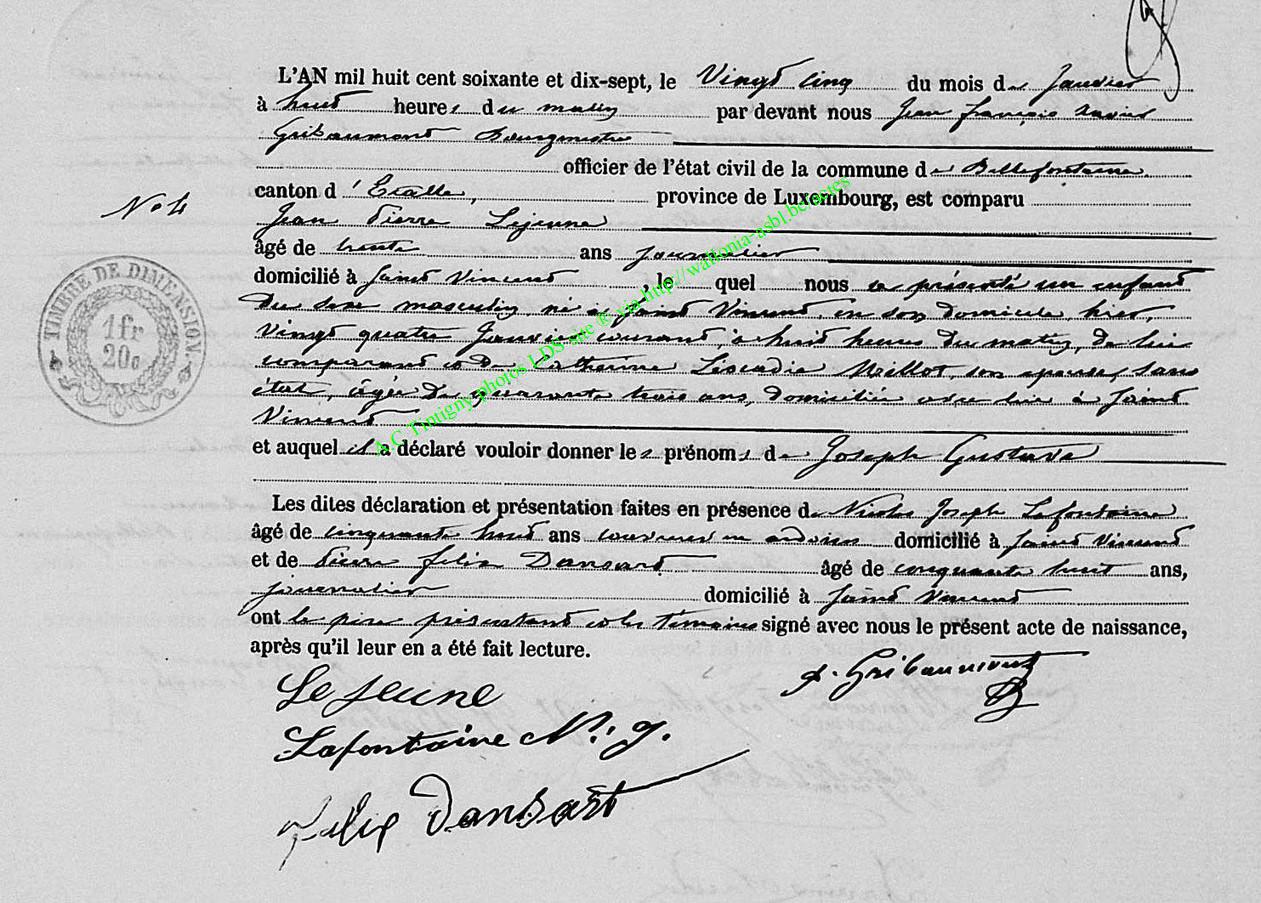 L'AN mil huit cent soixante et dix-sept, le Vingt cinq du mois de Janvier
à huit heures du matin par devant nous Jean françois xavier
Gribaumont Bourgmestre
officier de l'état civil de la commune de Bellefontaine
No 4
canton d'Etalle, province de Luxembourg, est comparu
Jean Pierre Lejeune
âgé de trente ans journalier
domicilié à Saint Vincent, le quel nous a présenté un enfant
du sexe masculin, né à Saint Vincent, en son domicile, hier,
Vingt quatre Janvier courant, à huit heures du matin, de lui
comparant et de Catherine Léocadie Millot, son épouse, sans
état, âgée de quarante trois ans, domiciliée avec lui à Saint
Vincent
et auquel il a déclaré vouloir donner les prénoms de Joseph Gustave
Les dites déclaration et présentation faites en présence de Nicolas Joseph Lafontaine
âgé de cinquante huit ans couvreur en ardoises domicilié à Saint Vincent
et de Pierre felix Dansart âgé de cinquante huit ans,
journalier domicilié à Saint Vincent
ont le père présentant et les témoins signé avec nous le présent acte de naissance,
après qu'il leur en a été fait lecture.
Lejeune
Gribaumont
Lafontaine N. j.
felix Dansart
TIMBRE DE DIMENSION
1 fr
20c
A.C. Tintigny photos LDS site ® via http://wallonia-asbl.be/actes